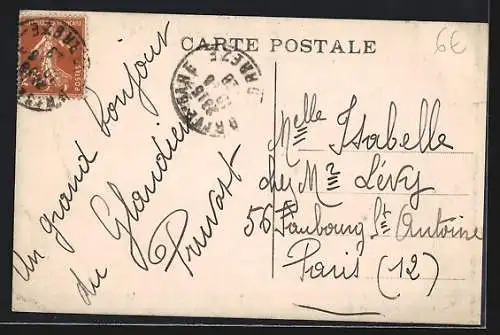 CARTE POSTALE
6€
Un grand bonjour
du Glandier
Pruvast
Melle Isabelle
chez Mr Lévy
56 Faubourg St Antoine
Paris (12)